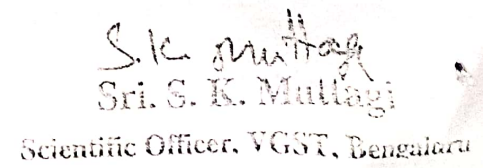 S. K. Muttagi
Sri. S. K. Muttagi
Scientific Officer, VGST, Bengaluru